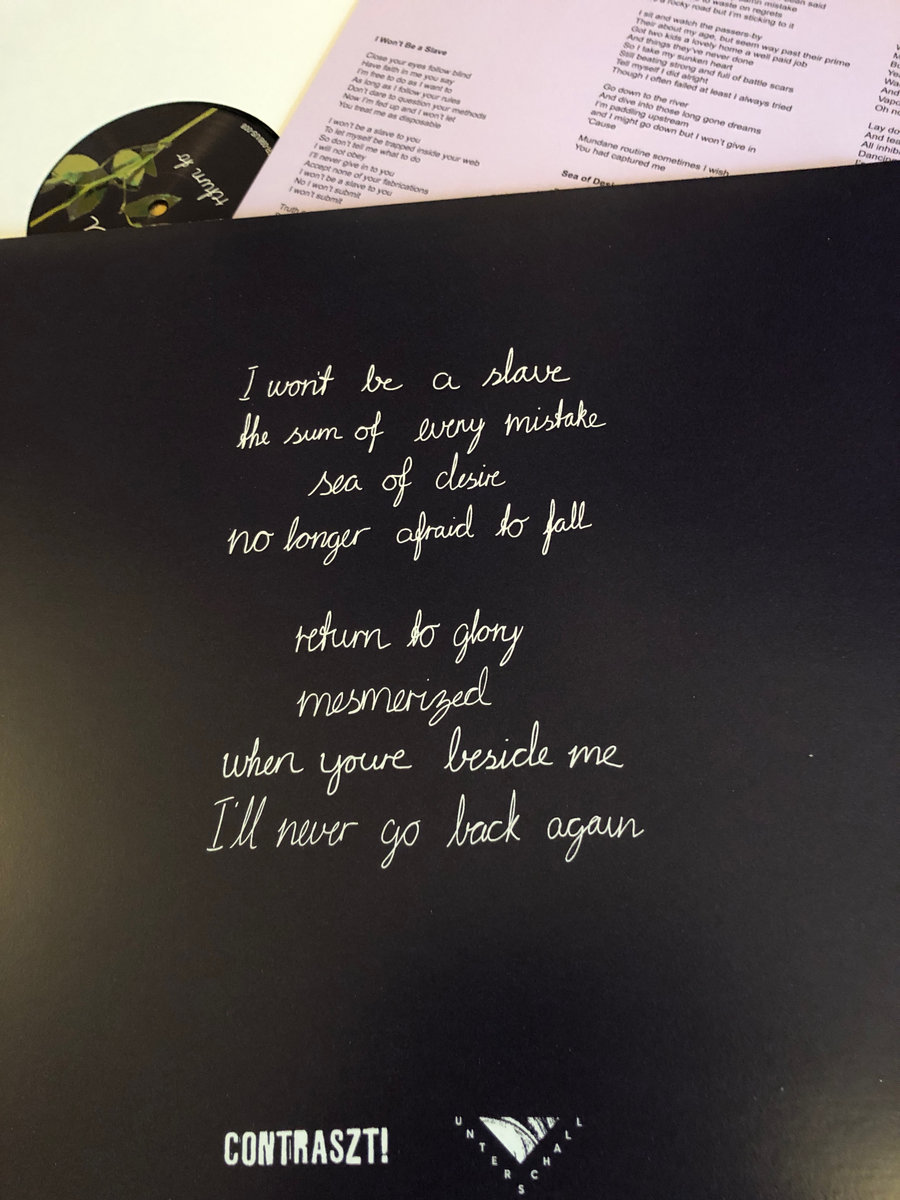 I Won't Be a Slave
Close your eyes follow blind
Have faith in me you say
I'm free to do as I want to
As long as I follow your rules
Don't dare to question your methods
Now I'm fed up and I won't let
You treat me as disposable
I won't be a slave to you
To let myself be trapped inside your web
So don't tell me what to do
I will not obey
I'll never give in to you
Accept none of your fabrications
I won't be a slave to you
No I won't submit
I won't submit
Truth
said
mistake
to waste on regrets
a rocky road but I'm sticking to it
I sit and watch the passers-by
Their about my age, but seem way past their prime
Got two kids a lovely home a well paid job
And things they've never done
So I take my sunken heart
Still beating strong and full of battle scars
Tell myself I did alright
Though I often failed at least I always tried
Go down to the river
And dive into those long gone dreams
I'm paddling upstream
and I might go down but I won't give in
'Cause
Mundane routine sometimes I wish
You had captured me
Sea of Desi
Oh n
Lay do
And tea
All inhib
Dancin
return to
I won't be a slave
the sum of every mistake
sea of desire
no longer afraid to fall
return to glory
mesmerized
when youre beside me
I'll never go back again
CONTRASZT!
UNTERSCHALL